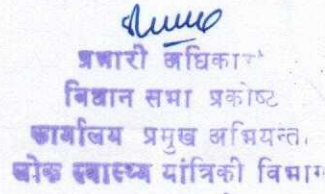 प्रभारी अधिकारी
विधान सभा प्रकोष्ट
कार्यालय प्रमुख अभियन्ता,
लोक स्वास्थ्य यांत्रिकी विभाग